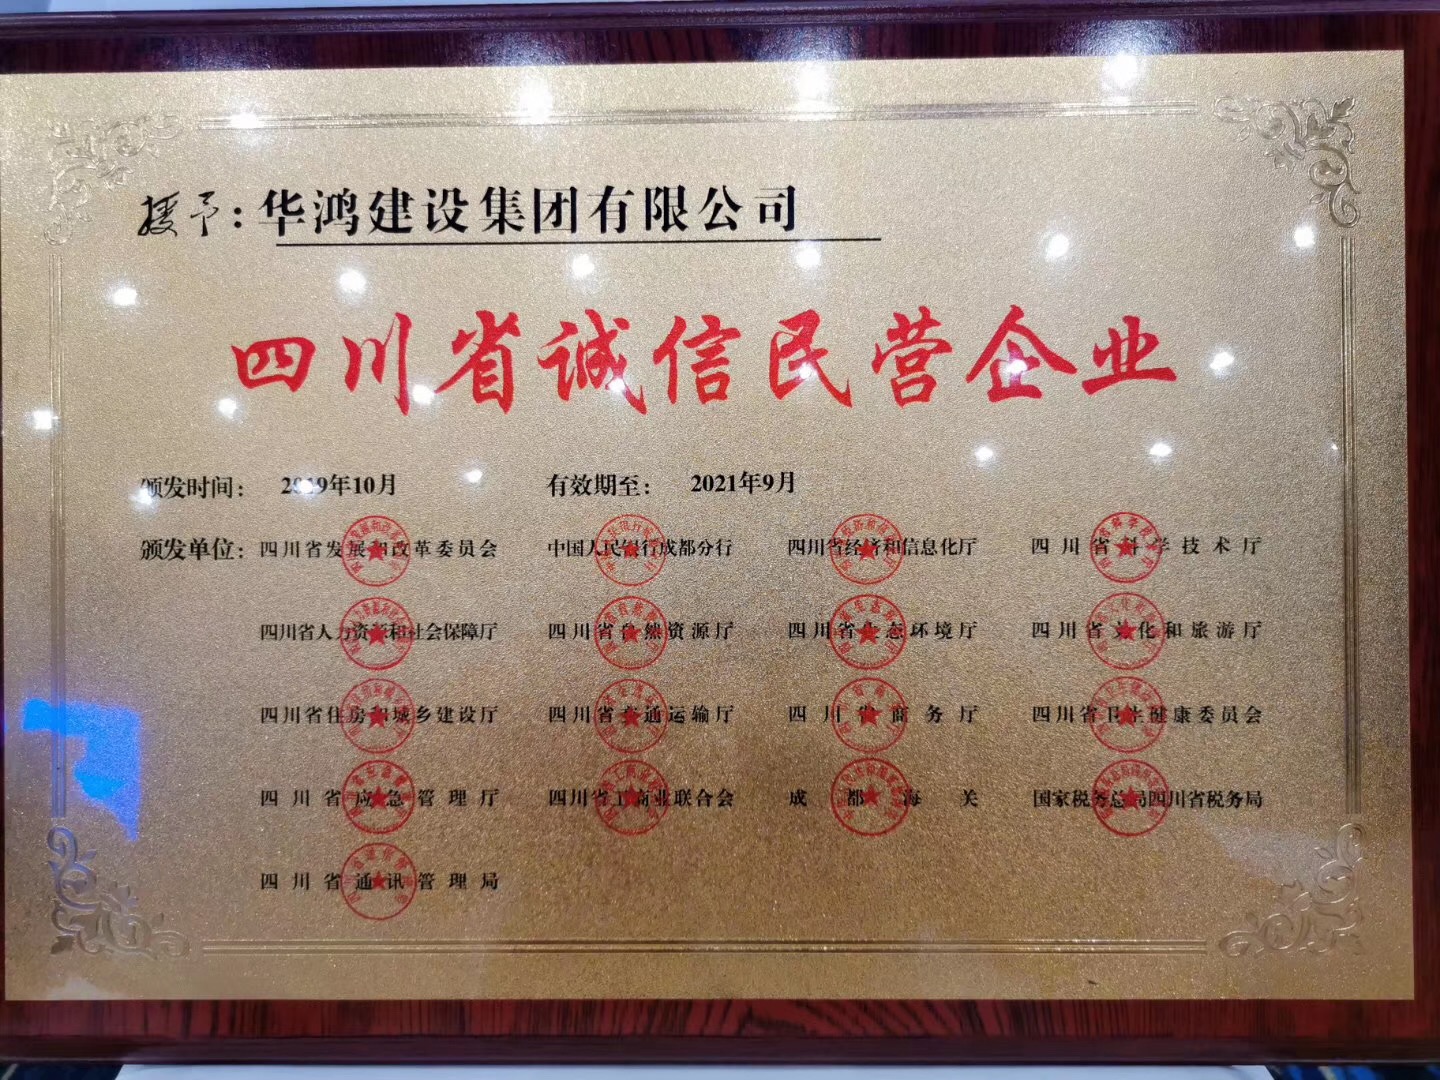 授予：华鸿建设集团有限公司
四川省诚信民营企业
颁发时间： 2019年10月 有效期至： 2021年9月
颁发单位：四川省发展和改革委员会 中国人民银行成都分行 四川省经济和信息化厅 四川省科学技术厅
四川省人力资源和社会保障厅 四川省自然资源厅 四川省生态环境厅 四川省文化和旅游厅
四川省住房和城乡建设厅 四川省交通运输厅 四川省商务厅 四川省卫生健康委员会
四川省应急管理厅 四川省工商业联合会 成都海关 国家税务总局四川省税务局
四川省通讯管理局